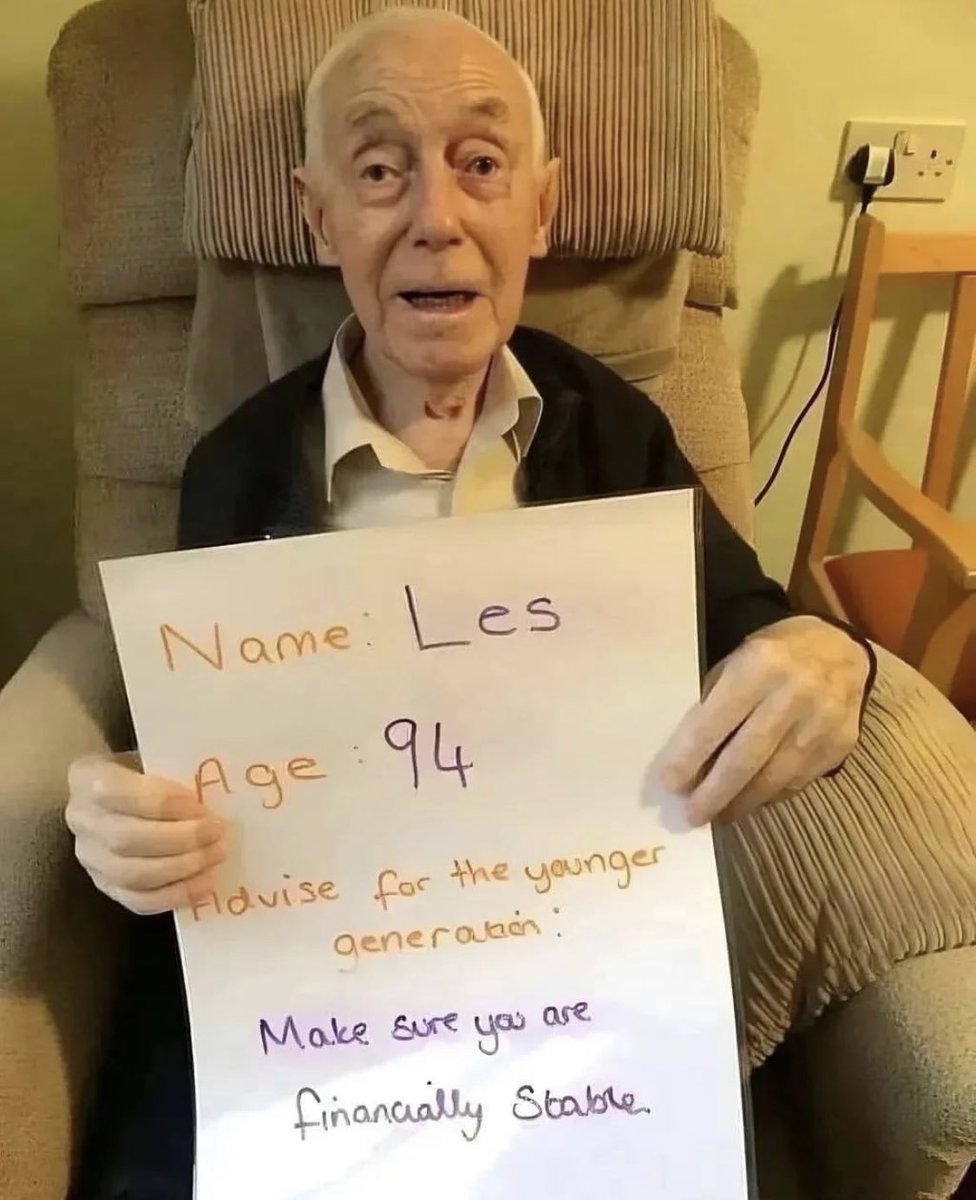 Name: Les
Age: 94
Advise for the younger
generation:
Make sure you are
financially stable.